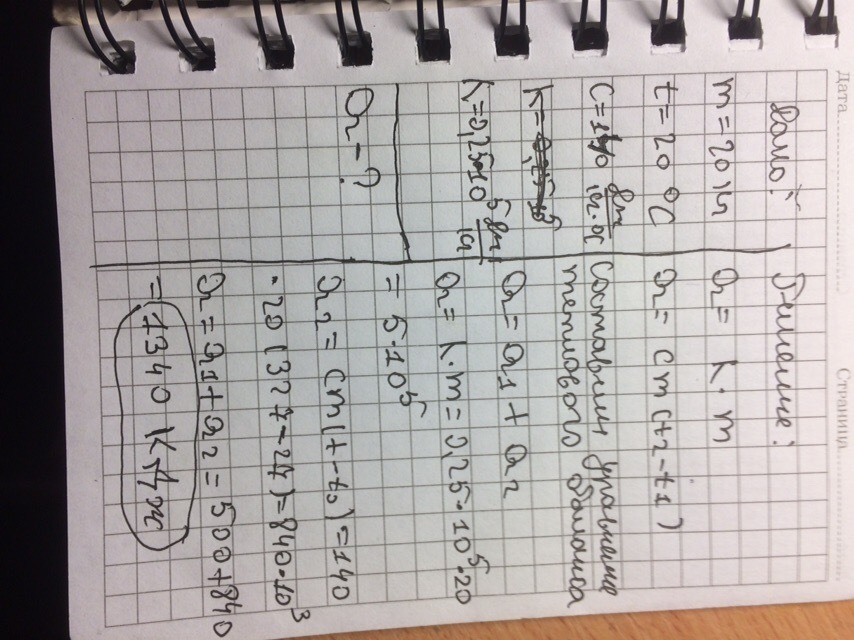 Дата
Страница
Дано:
m = 20 кг
t = 20 °C
c = 140 Дж/кг·°C
K = 0,25·10⁵ Дж/кг
Q - ?
Решение:
Q = K·m
Q = cm(t2 - t1)
Составим уравнение
теплового баланса
Q = Q1 + Q2
Q = K·m = 0,25·10⁵·20
= 5·10⁵
Q2 = cm(t - t0) = 140
·20 (327 - 27) = 840·10³
Q = Q1 + Q2 = 500 + 840
= 1340 КДж